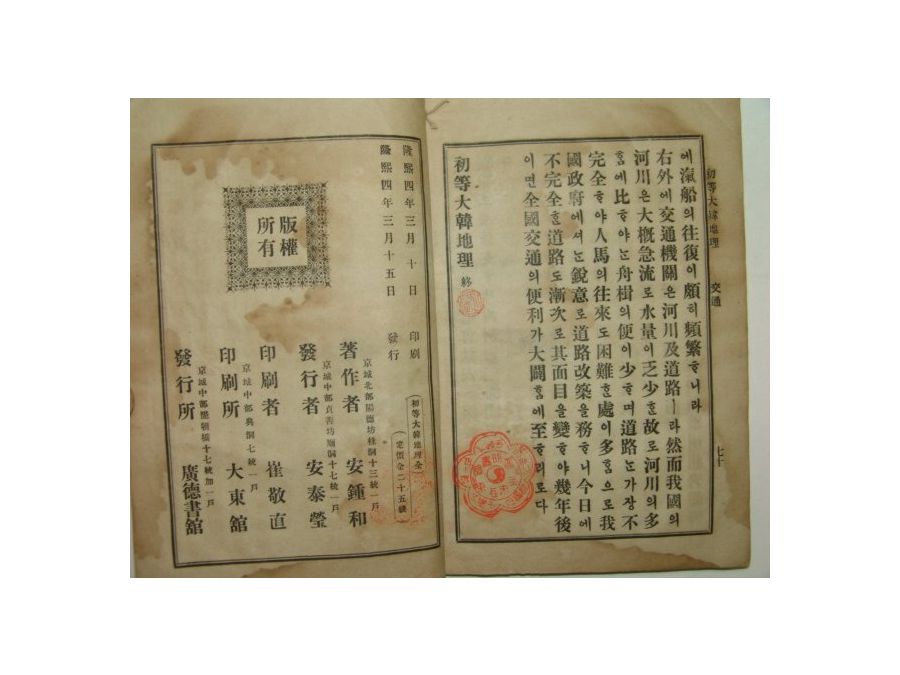 初等大韓地理 交通 七十
에滊船의往復이頗히頻繁ᄒᆞ니라
右外에交通機關은河川及道路ㅣ라然而我國의
河川은大槪急流로水量이乏少ᄒᆞᆫ故로河川의多
ᄒᆞᆷ에比ᄒᆞ야ᄂᆞᆫ舟楫의便이少ᄒᆞ며道路ᄂᆞᆫ가장不
完全ᄒᆞ야人馬의往來도困難ᄒᆞᆫ處이多ᄒᆞᆷ으로我
國政府에셔ᄂᆞᆫ銳意로道路改築을務ᄒᆞ니今日에
不完全ᄒᆞᆫ道路도漸次로其面目을變ᄒᆞ야幾年後
이면全國交通의便利가大闢ᄒᆞᆷ에至ᄒᆞ리로다
初等大韓地理 終
隆熙四年三月十日 印刷
隆熙四年三月十五日 發行
版權
所有
(初等大韓地理全)
(定價金二十五錢)
京城北部陽德坊桂洞十三統一戶
著作者 安鍾和
京城中部貞善坊廟洞十七統一戶
發行者 安泰瑩
印刷者 崔敬直
京城中部典洞七統一戶
印刷所 大東館
京城中部鐵物橋十七統加一戶
發行所 廣德書舘